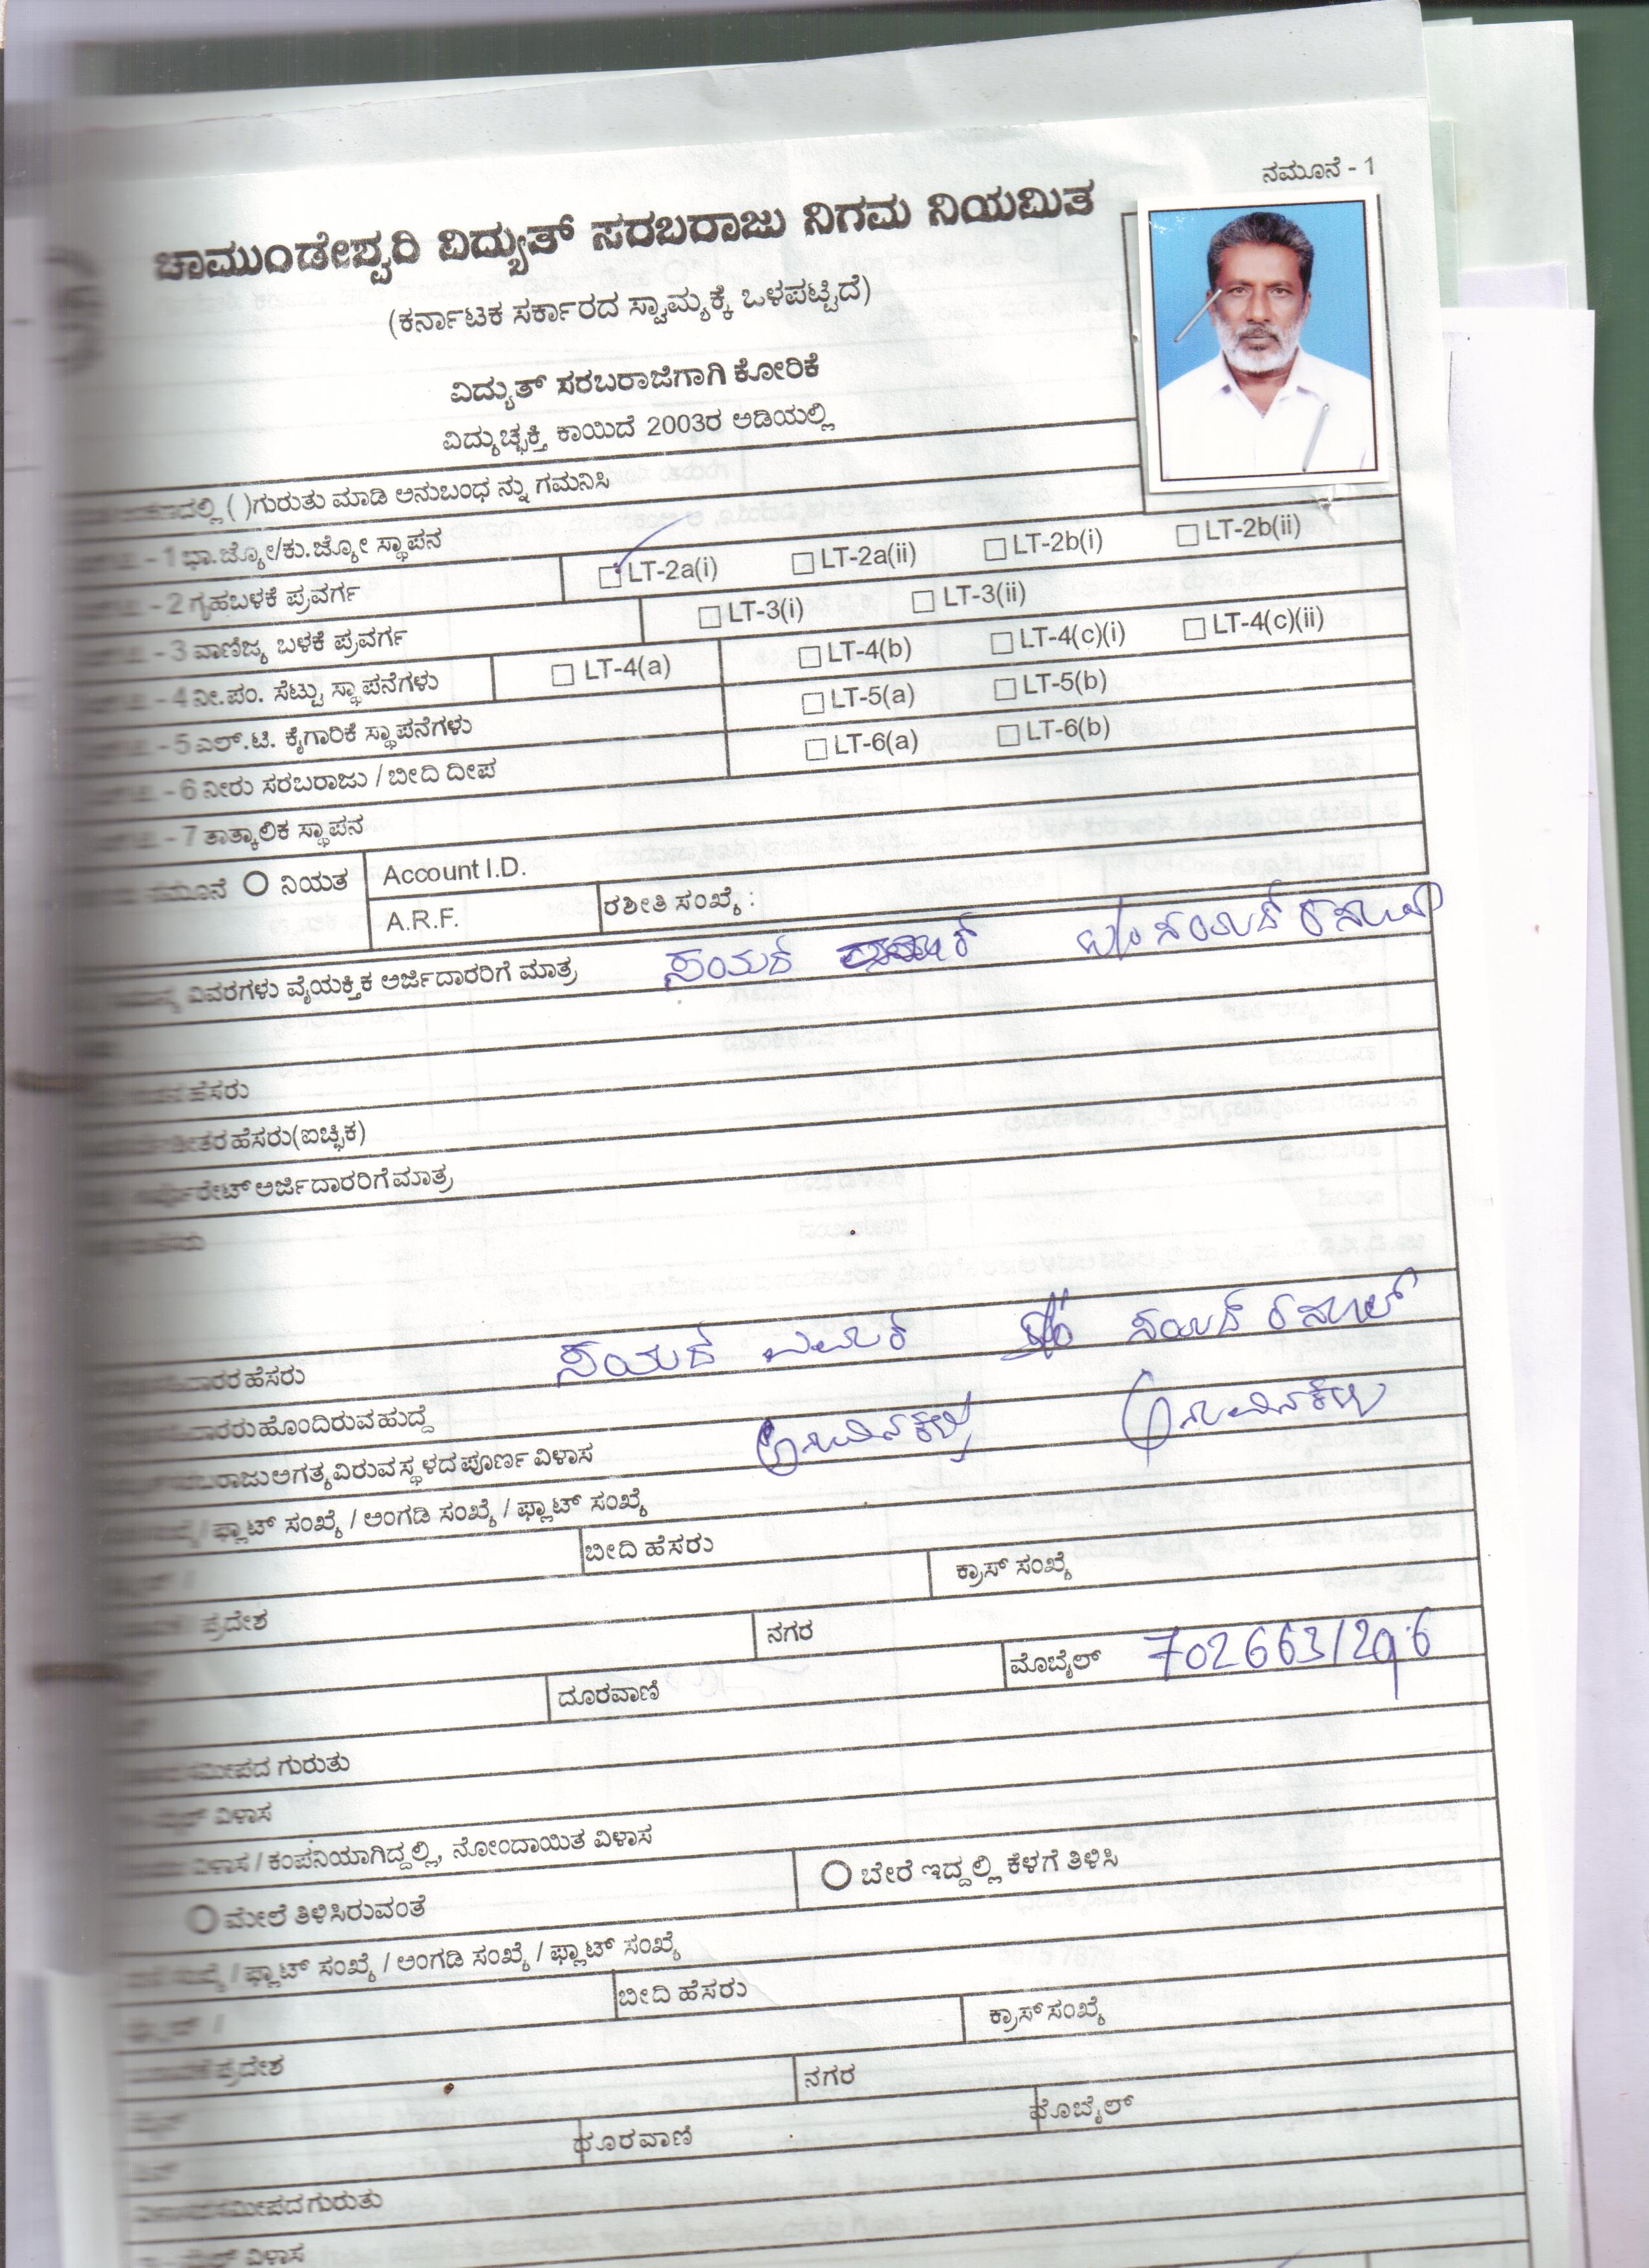 ನಮೂನೆ - 1
ಚಾಮುಂಡೇಶ್ವರಿ ವಿದ್ಯುತ್ ಸರಬರಾಜು ನಿಗಮ ನಿಯಮಿತ
(ಕರ್ನಾಟಕ ಸರ್ಕಾರದ ಸ್ವಾಮ್ಯಕ್ಕೆ ಒಳಪಟ್ಟಿದೆ)
ವಿದ್ಯುತ್ ಸರಬರಾಜಿಗಾಗಿ ಕೋರಿಕೆ
ವಿದ್ಯುಚ್ಛಕ್ತಿ ಕಾಯಿದೆ 2003ರ ಅಡಿಯಲ್ಲಿ
( )ಗುರುತು ಮಾಡಿ ಅನುಬಂಧ ನ್ನು ಗಮನಿಸಿ
- 1 ಭಾ.ಜ್ಯೋ/ಕು.ಜ್ಯೋ ಸ್ಥಾಪನ
- 2 ಗೃಹಬಳಕೆ ಪ್ರವರ್ಗ LT-2a(i) LT-2a(ii) LT-2b(i) LT-2b(ii)
- 3 ವಾಣಿಜ್ಯ ಬಳಕೆ ಪ್ರವರ್ಗ LT-3(i) LT-3(ii)
- 4 ನೀ.ಪಂ. ಸೆಟ್ಟು ಸ್ಥಾಪನೆಗಳು LT-4(a) LT-4(b) LT-4(c)(i) LT-4(c)(ii)
- 5 ಎಲ್.ಟಿ. ಕೈಗಾರಿಕೆ ಸ್ಥಾಪನೆಗಳು LT-5(a) LT-5(b)
- 6 ನೀರು ಸರಬರಾಜು / ಬೀದಿ ದೀಪ LT-6(a) LT-6(b)
- 7 ತಾತ್ಕಾಲಿಕ ಸ್ಥಾಪನ
ನಮೂನೆ ನಿಯತ Account I.D.
A.R.F. ರಶೀತಿ ಸಂಖ್ಯೆ :
ವಿವರಗಳು ವೈಯಕ್ತಿಕ ಅರ್ಜಿದಾರರಿಗೆ ಮಾತ್ರ ಸಯದ್
ಹೆಸರು
ಹೆಸರು(ಐಚ್ಛಿಕ)
ಅರ್ಜಿದಾರರಿಗೆ ಮಾತ್ರ
ಹೆಸರು ಸಯದ್ ಸಯದ್ ರಸೂಲ್
ಹೊಂದಿರುವ ಹುದ್ದೆ
ಅಗತ್ಯವಿರುವ ಸ್ಥಳದ ಪೂರ್ಣ ವಿಳಾಸ
/ ಫ್ಲಾಟ್ ಸಂಖ್ಯೆ / ಅಂಗಡಿ ಸಂಖ್ಯೆ / ಫ್ಲಾಟ್ ಸಂಖ್ಯೆ
ಬೀದಿ ಹೆಸರು ಕ್ರಾಸ್ ಸಂಖ್ಯೆ
ಪ್ರದೇಶ ನಗರ
ದೂರವಾಣಿ ಮೊಬೈಲ್ 7026631296
ಸಮೀಪದ ಗುರುತು
ವಿಳಾಸ
ವಿಳಾಸ / ಕಂಪನಿಯಾಗಿದ್ದಲ್ಲಿ, ನೋಂದಾಯಿತ ವಿಳಾಸ
ಮೇಲೆ ತಿಳಿಸಿರುವಂತೆ ಬೇರೆ ಇದ್ದಲ್ಲಿ ಕೆಳಗೆ ತಿಳಿಸಿ
/ ಫ್ಲಾಟ್ ಸಂಖ್ಯೆ / ಅಂಗಡಿ ಸಂಖ್ಯೆ / ಫ್ಲಾಟ್ ಸಂಖ್ಯೆ
ಬೀದಿ ಹೆಸರು ಕ್ರಾಸ್ ಸಂಖ್ಯೆ
ಪ್ರದೇಶ ನಗರ
ದೂರವಾಣಿ ಮೊಬೈಲ್
ಸಮೀಪದ ಗುರುತು
ವಿಳಾಸ